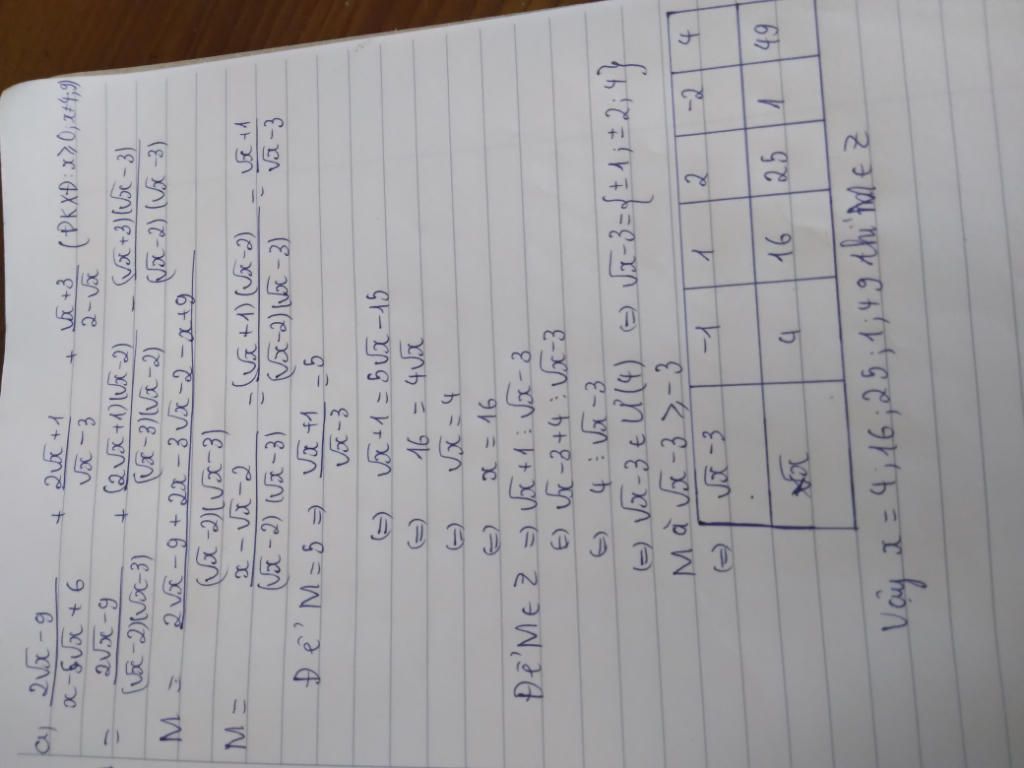 a) (2√x - 9)/(x - 5√x + 6) + (2√x + 1)/(√x - 3) + (√x + 3)/(2 - √x) (ĐKXĐ: x ≥ 0, x ≠ 4, 9)
= (2√x - 9)/((√x - 2)(√x - 3)) + ((2√x + 1)(√x - 2))/((√x - 3)(√x - 2)) - ((√x + 3)(√x - 3))/((√x - 2)(√x - 3))
M = (2√x - 9 + 2x - 3√x - 2 - x + 9)/((√x - 2)(√x - 3))
M = (x - √x - 2)/((√x - 2)(√x - 3)) = ((√x + 1)(√x - 2))/((√x - 2)(√x - 3)) = (√x + 1)/(√x - 3)
Để M = 5 ⇒ (√x + 1)/(√x - 3) = 5
⇔ √x + 1 = 5√x - 15
⇔ 16 = 4√x
⇔ √x = 4
⇔ x = 16
Để M ∈ Z ⇒ √x + 1 ⋮ √x - 3
⇔ √x - 3 + 4 ⋮ √x - 3
⇔ 4 ⋮ √x - 3
⇔ √x - 3 ∈ Ư(4) ⇔ √x - 3 = {±1; ±2; 4}
Mà √x - 3 ≥ -3
⇔ √x - 3 -1 1 2 -2 4
x 4 16 25 1 49
Vậy x = 4; 16; 25; 1; 49 thì M ∈ Z